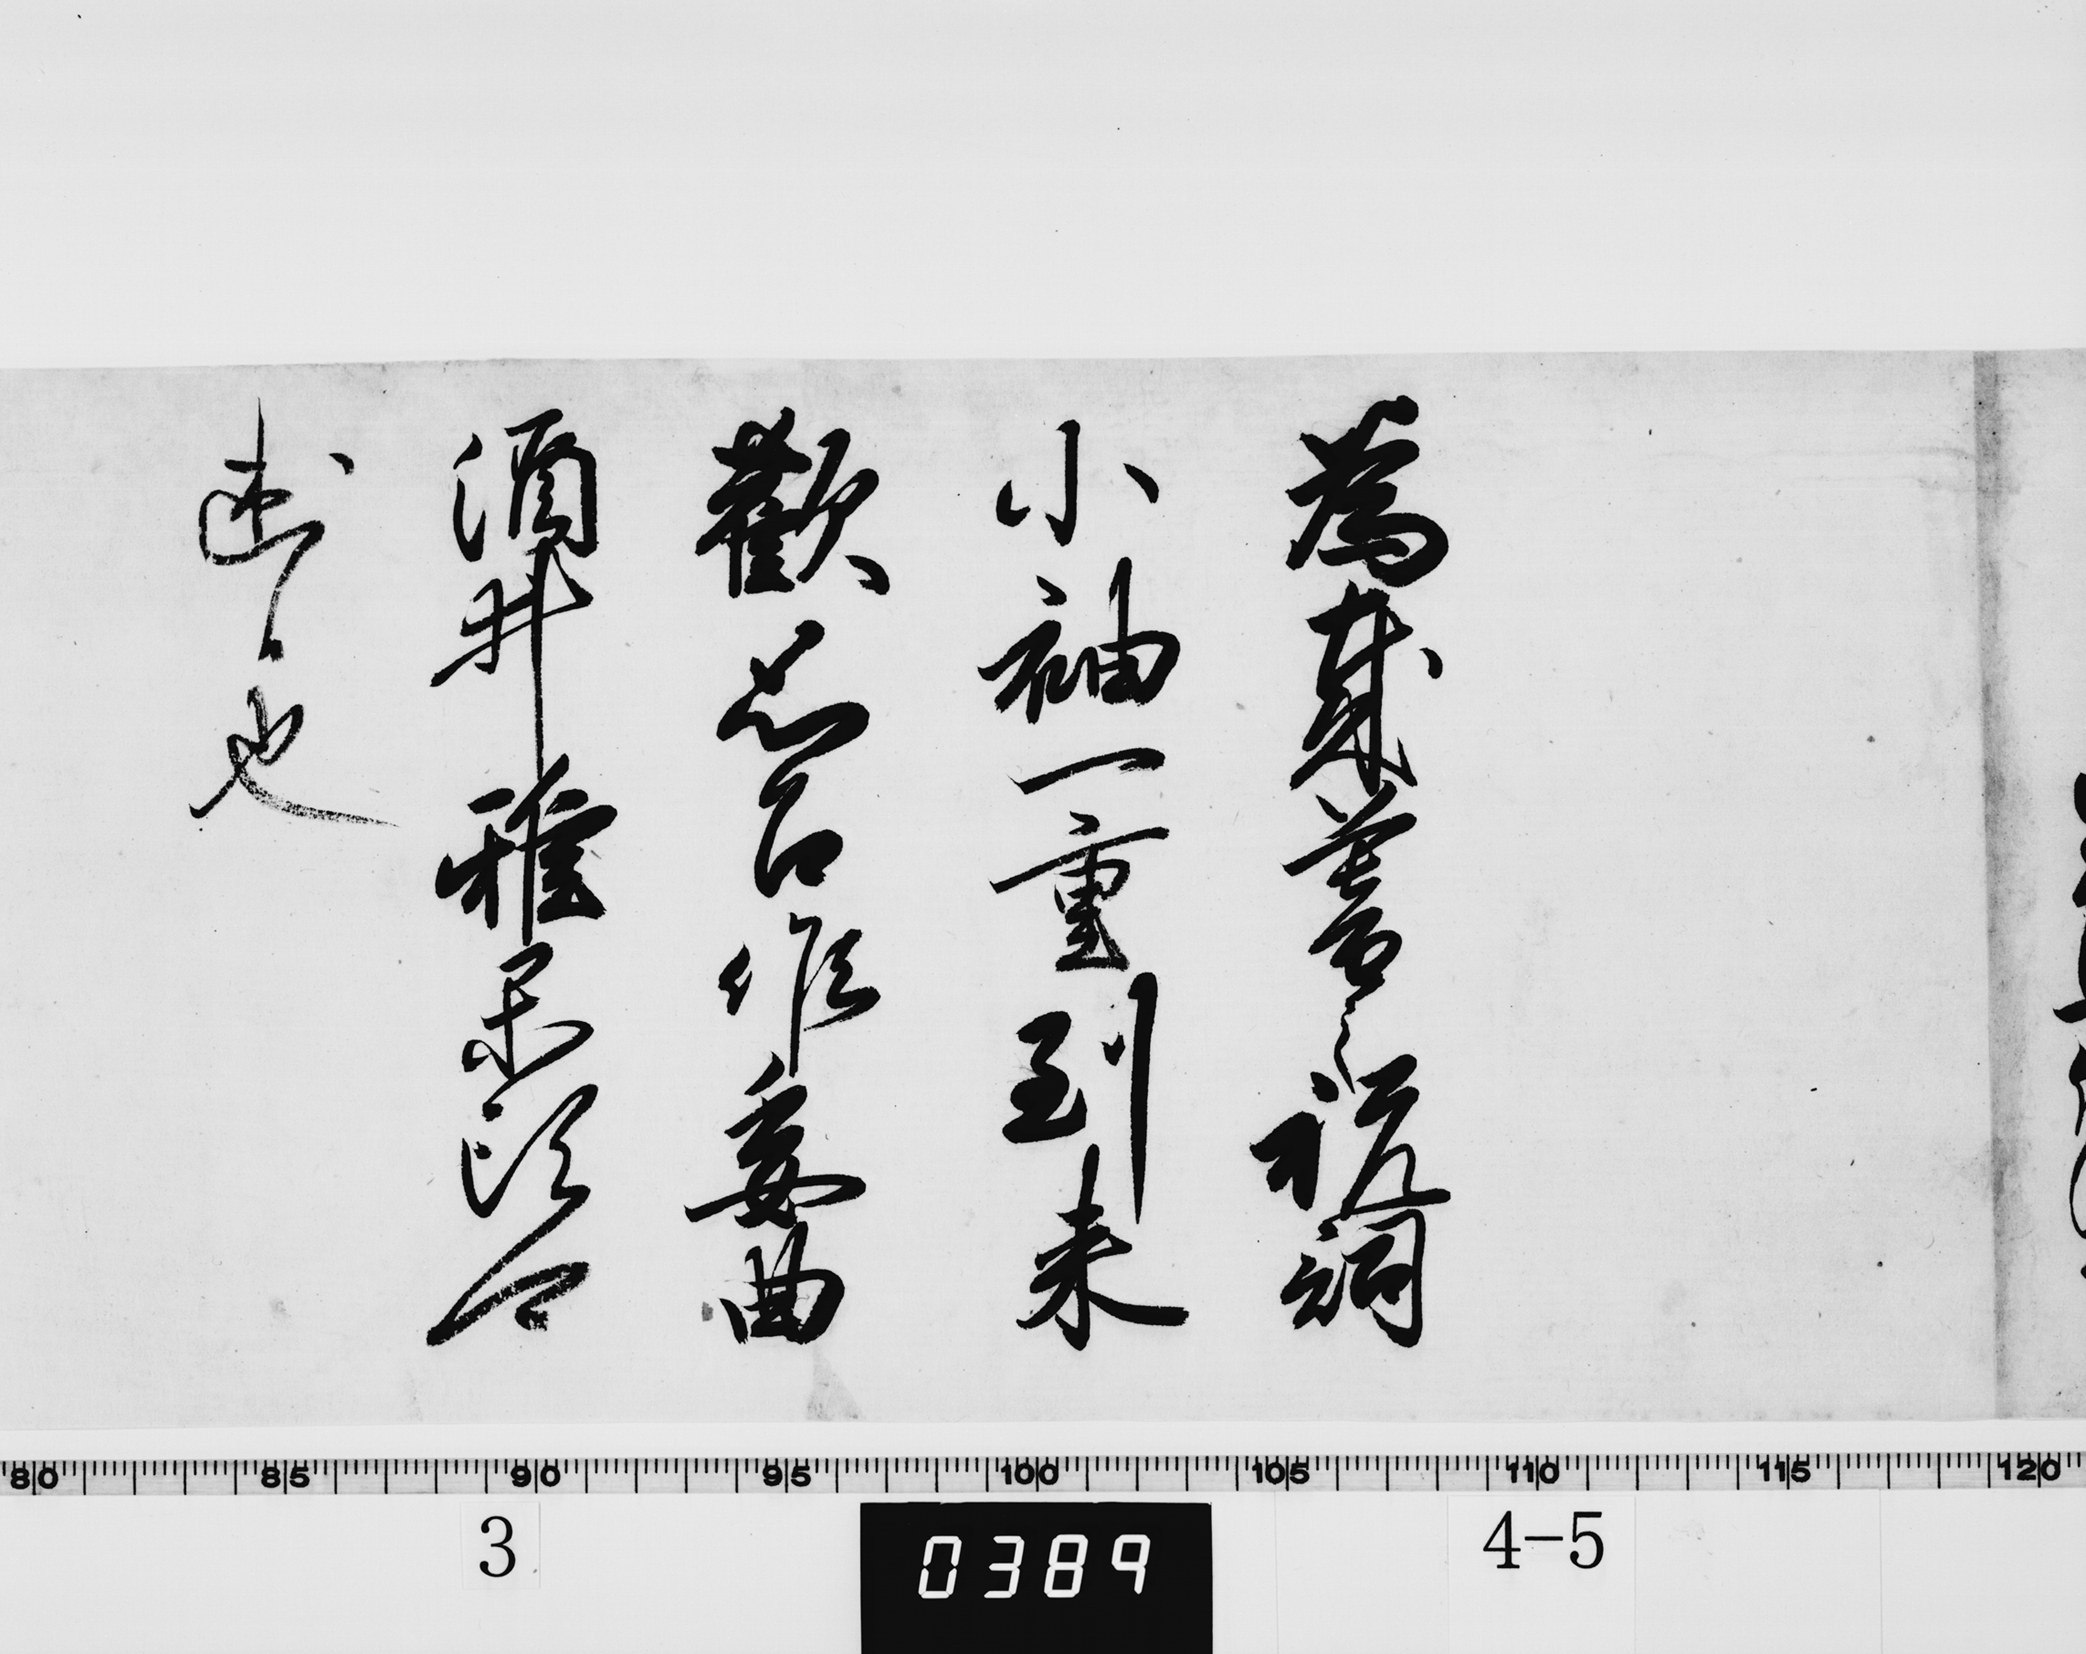 為歳暮之祝詞
小袖一重到来
歓思召候委曲
酒井雅楽頭可
述候也
80 85 90 95 100 105 110 115 120
3
0389
4-5